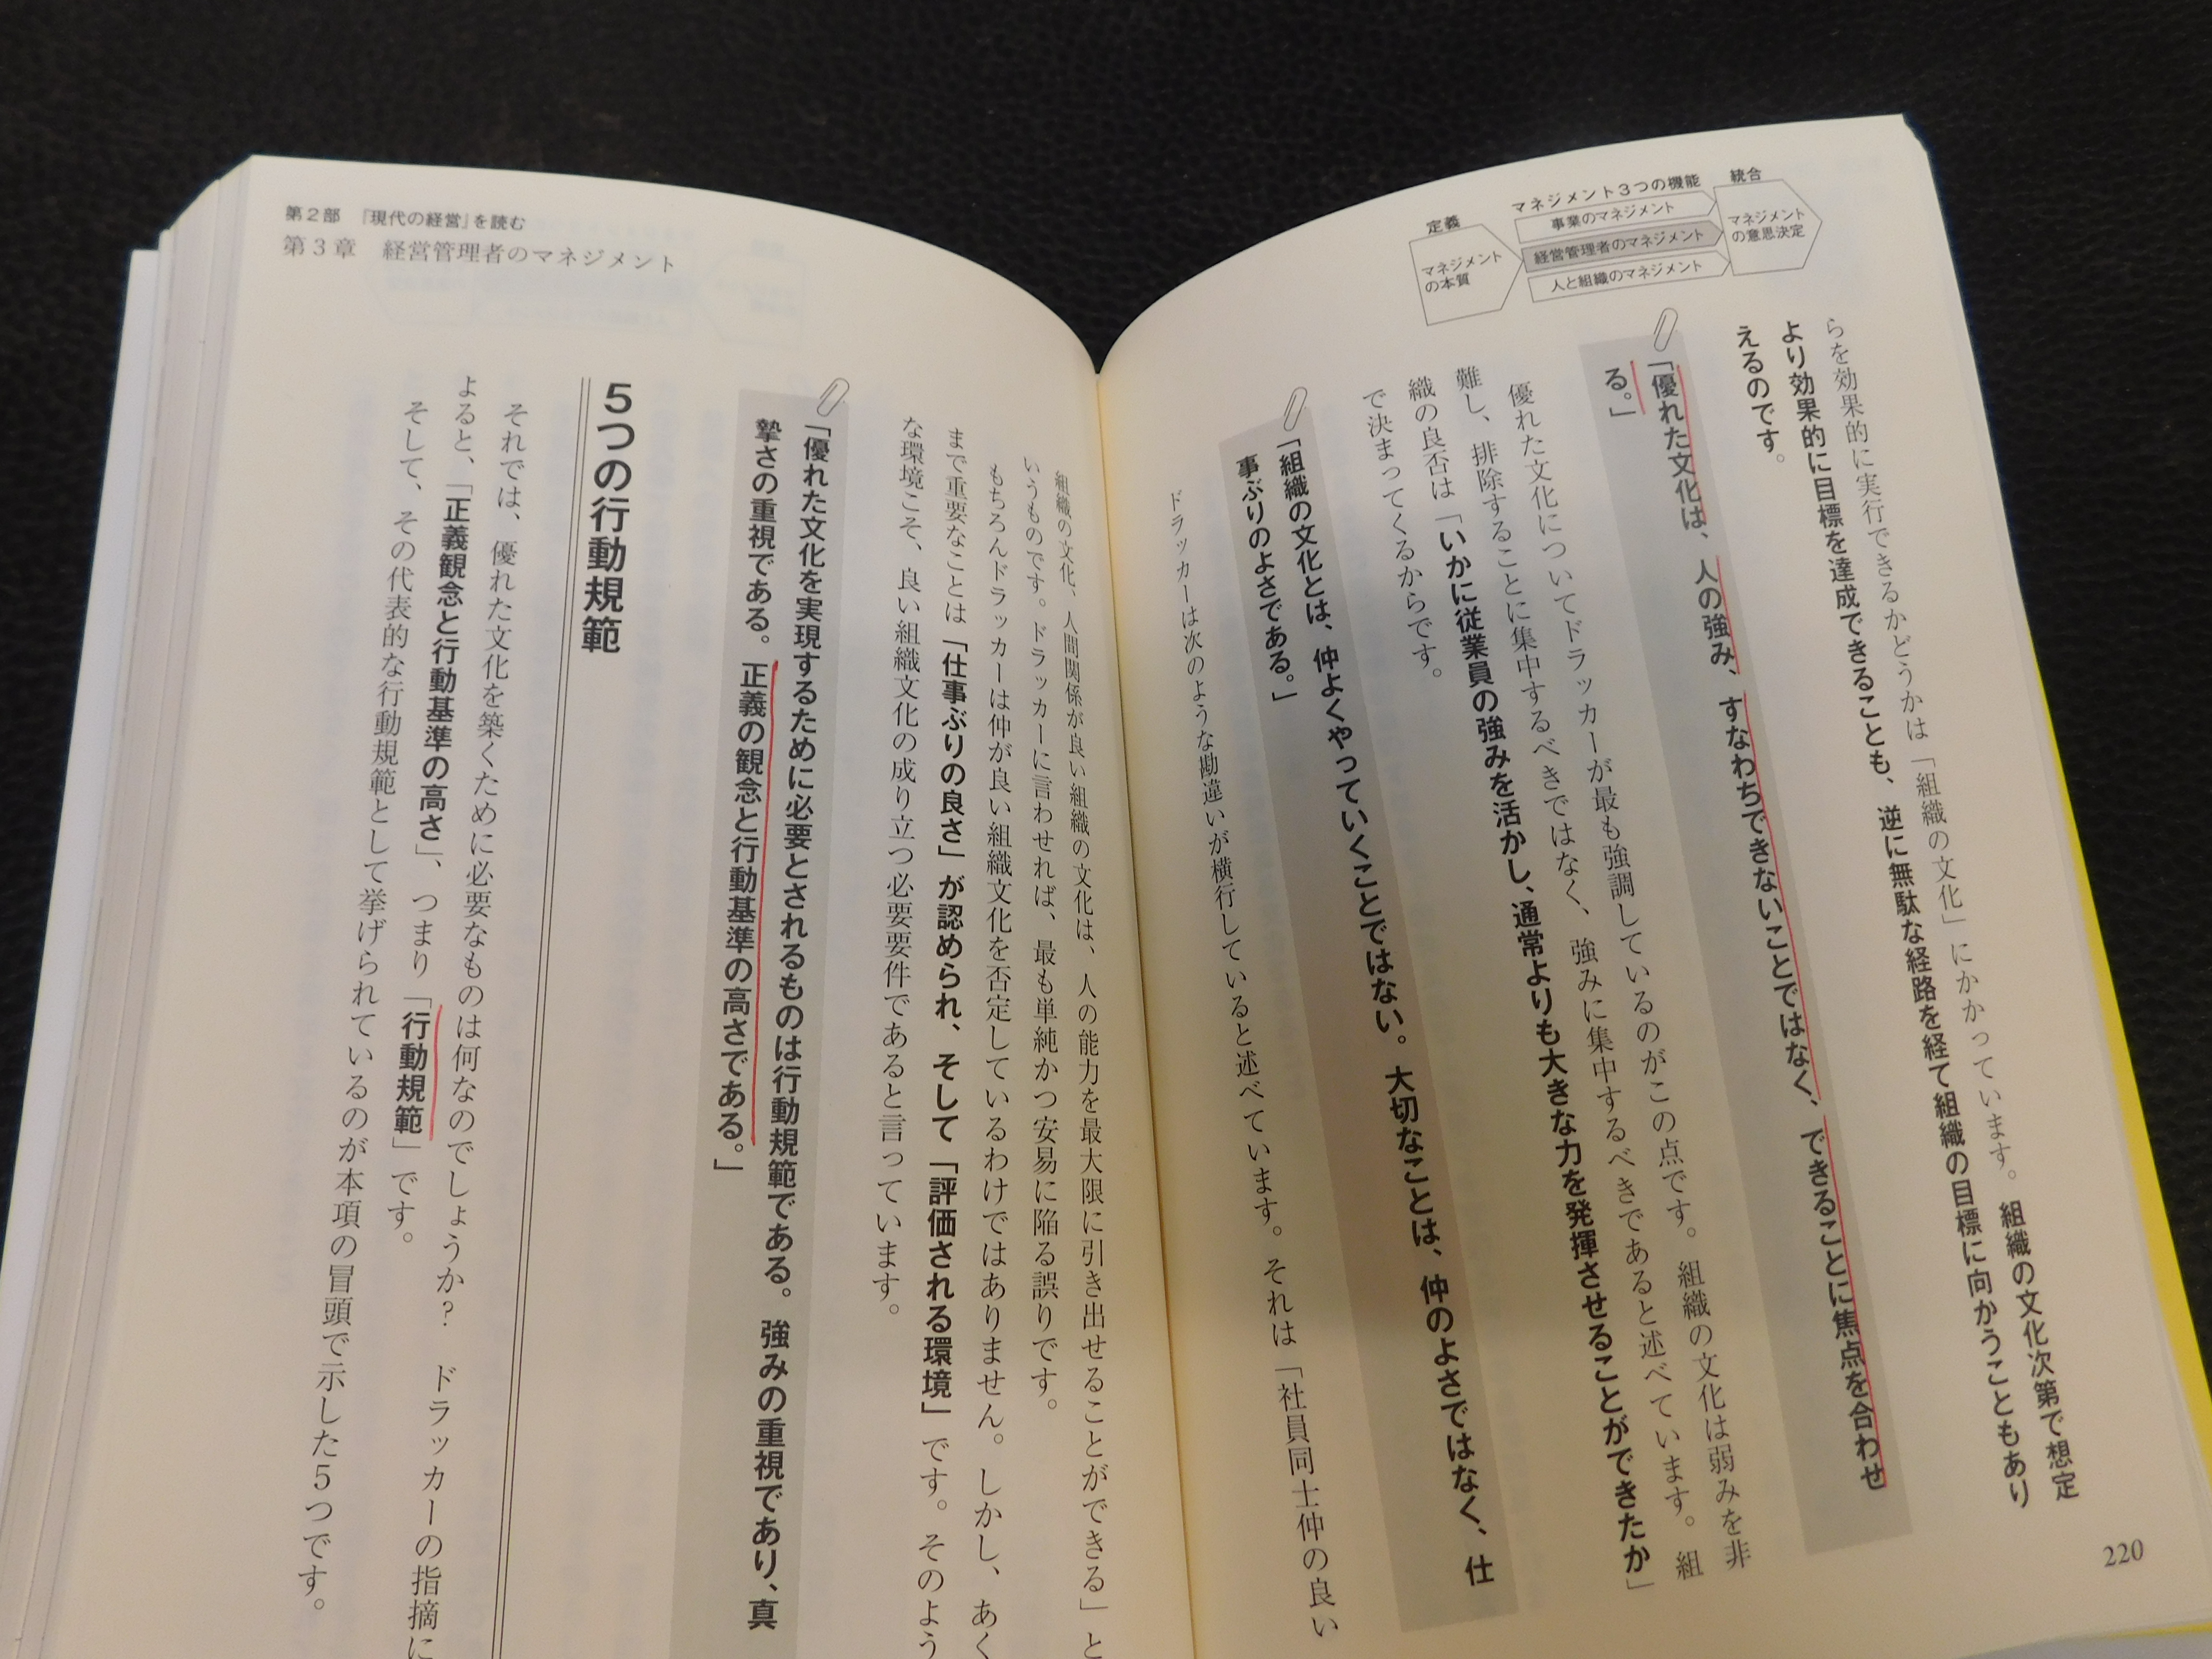 定義
マネジメント
の本質
マネジメント3つの機能
事業のマネジメント
経営管理者のマネジメント
人と組織のマネジメント
統合
マネジメント
の意思決定
らを効果的に実行できるかどうかは「組織の文化」にかかっています。組織の文化次第で想定
より効果的に目標を達成できることも、逆に無駄な経路を経て組織の目標に向かうこともあり
えるのです。
「優れた文化は、人の強み、すなわちできないことではなく、できることに焦点を合わせ
る。」
優れた文化についてドラッカーが最も強調しているのがこの点です。組織の文化は弱みを非
難し、排除することに集中するべきではなく、強みに集中するべきであると述べています。組
織の良否は「いかに従業員の強みを活かし、通常よりも大きな力を発揮させることができたか」
で決まってくるからです。
「組織の文化とは、仲よくやっていくことではない。大切なことは、仲のよさではなく、仕
事ぶりのよさである。」
ドラッカーは次のような勘違いが横行していると述べています。それは「社員同士仲の良い
220
第2部 『現代の経営』を読む
第3章 経営管理者のマネジメント
組織の文化、人間関係が良い組織の文化は、人の能力を最大限に引き出せることができる」と
いうものです。ドラッカーに言わせれば、最も単純かつ安易に陥る誤りです。
もちろんドラッカーは仲が良い組織文化を否定しているわけではありません。しかし、あく
まで重要なことは「仕事ぶりの良さ」が認められ、そして「評価される環境」です。そのよう
な環境こそ、良い組織文化の成り立つ必要要件であると言っています。
「優れた文化を実現するために必要とされるものは行動規範である。強みの重視であり、真
摯さの重視である。正義の観念と行動基準の高さである。」
5つの行動規範
それでは、優れた文化を築くために必要なものは何なのでしょうか? ドラッカーの指摘に
よると、「正義観念と行動基準の高さ」、つまり「行動規範」です。
そして、その代表的な行動規範として挙げられているのが本項の冒頭で示した5つです。